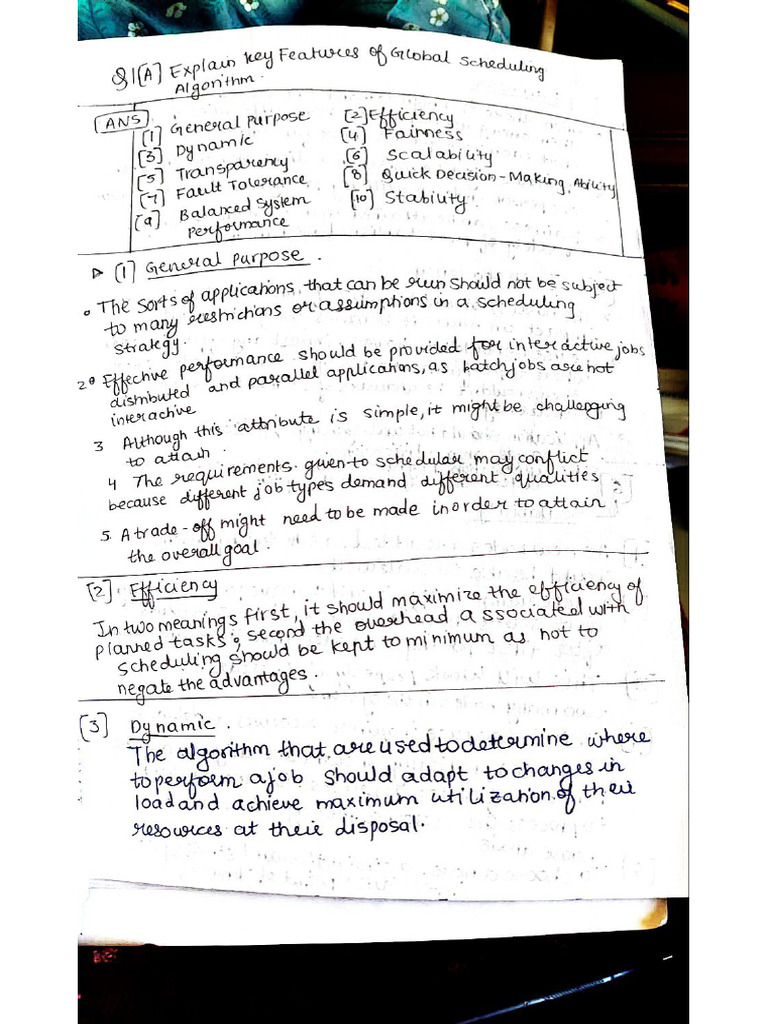 Q1[A] Explain Key Features of Global Scheduling
Algorithm.
ANS
[1] General Purpose [2] Efficiency
[3] Dynamic [4] Fairness
[5] Transparency [6] Scalability
[7] Fault Tolerance [8] Quick Decision-Making Ability
[9] Balanced System [10] Stability
Performance
(1) General Purpose.
The sorts of applications that can be run should not be subject
to many restrictions or assumptions in a scheduling
strategy.
2 Effective performance should be provided for interactive jobs
distributed and parallel applications, as batch jobs are not
interactive
3 Although this attribute is simple, it might be challenging
to attain.
4 The requirements given to schedular may conflict
because different job types demand different qualities.
5. A trade-off might need to be made inorder to attain
the overall goal.
[2] Efficiency
In two meanings first, it should maximize the efficiency of
planned tasks; second the overhead associated with
scheduling should be kept to minimum as not to
negate the advantages.
[3] Dynamic.
The algorithm that are used to determine where
to perform a job should adapt to changes in
load and achieve maximum utilization of their
resources at their disposal.